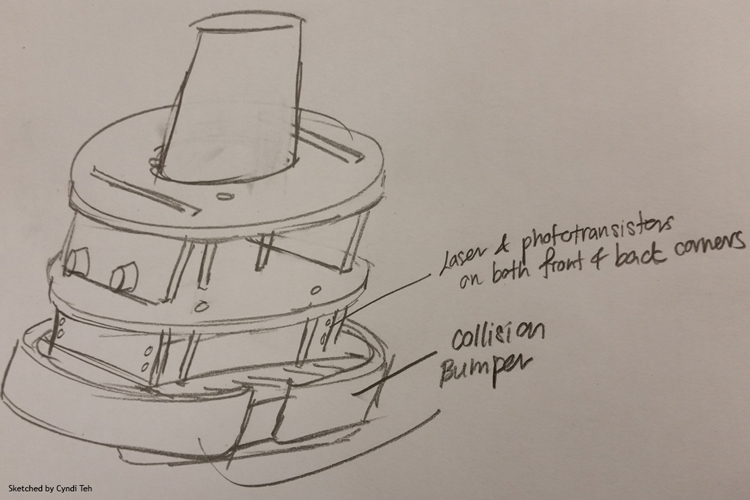 Laser & phototransistors
on both front & back corners
Collision
Bumper
Sketched by Cyndi Teh